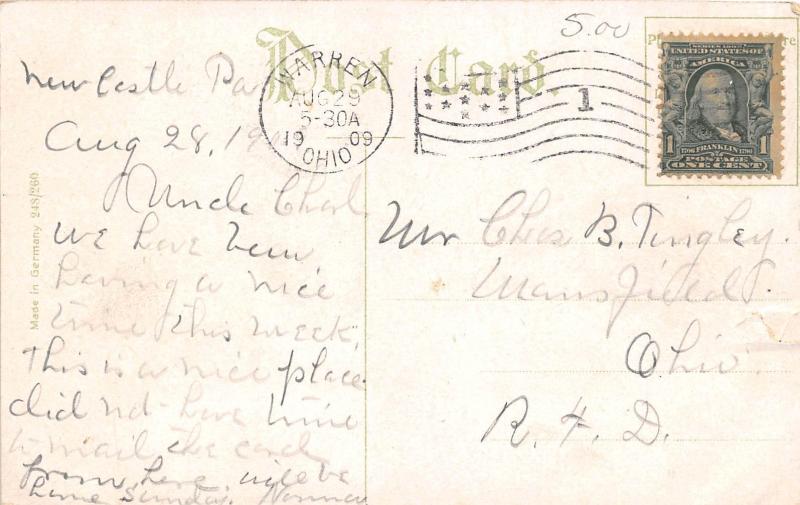 5.00
Post Card.
New Castle Pa
Aug 28, 19
Uncle Charl
We have been
having a nice
time this week,
This is a nice place
did not have time
to mail the card
from here will be
home Sunday. Norman
Made in Germany 248/260
WARREN
AUG 29
5-30A
19 09
OHIO
1
SERIES 1902
UNITED STATES OF
AMERICA
1 1706 FRANKLIN 1790 1
POSTAGE
ONE CENT
Mr Chas B. Tingley.
Mansfield.
Ohio.
R. F. D.